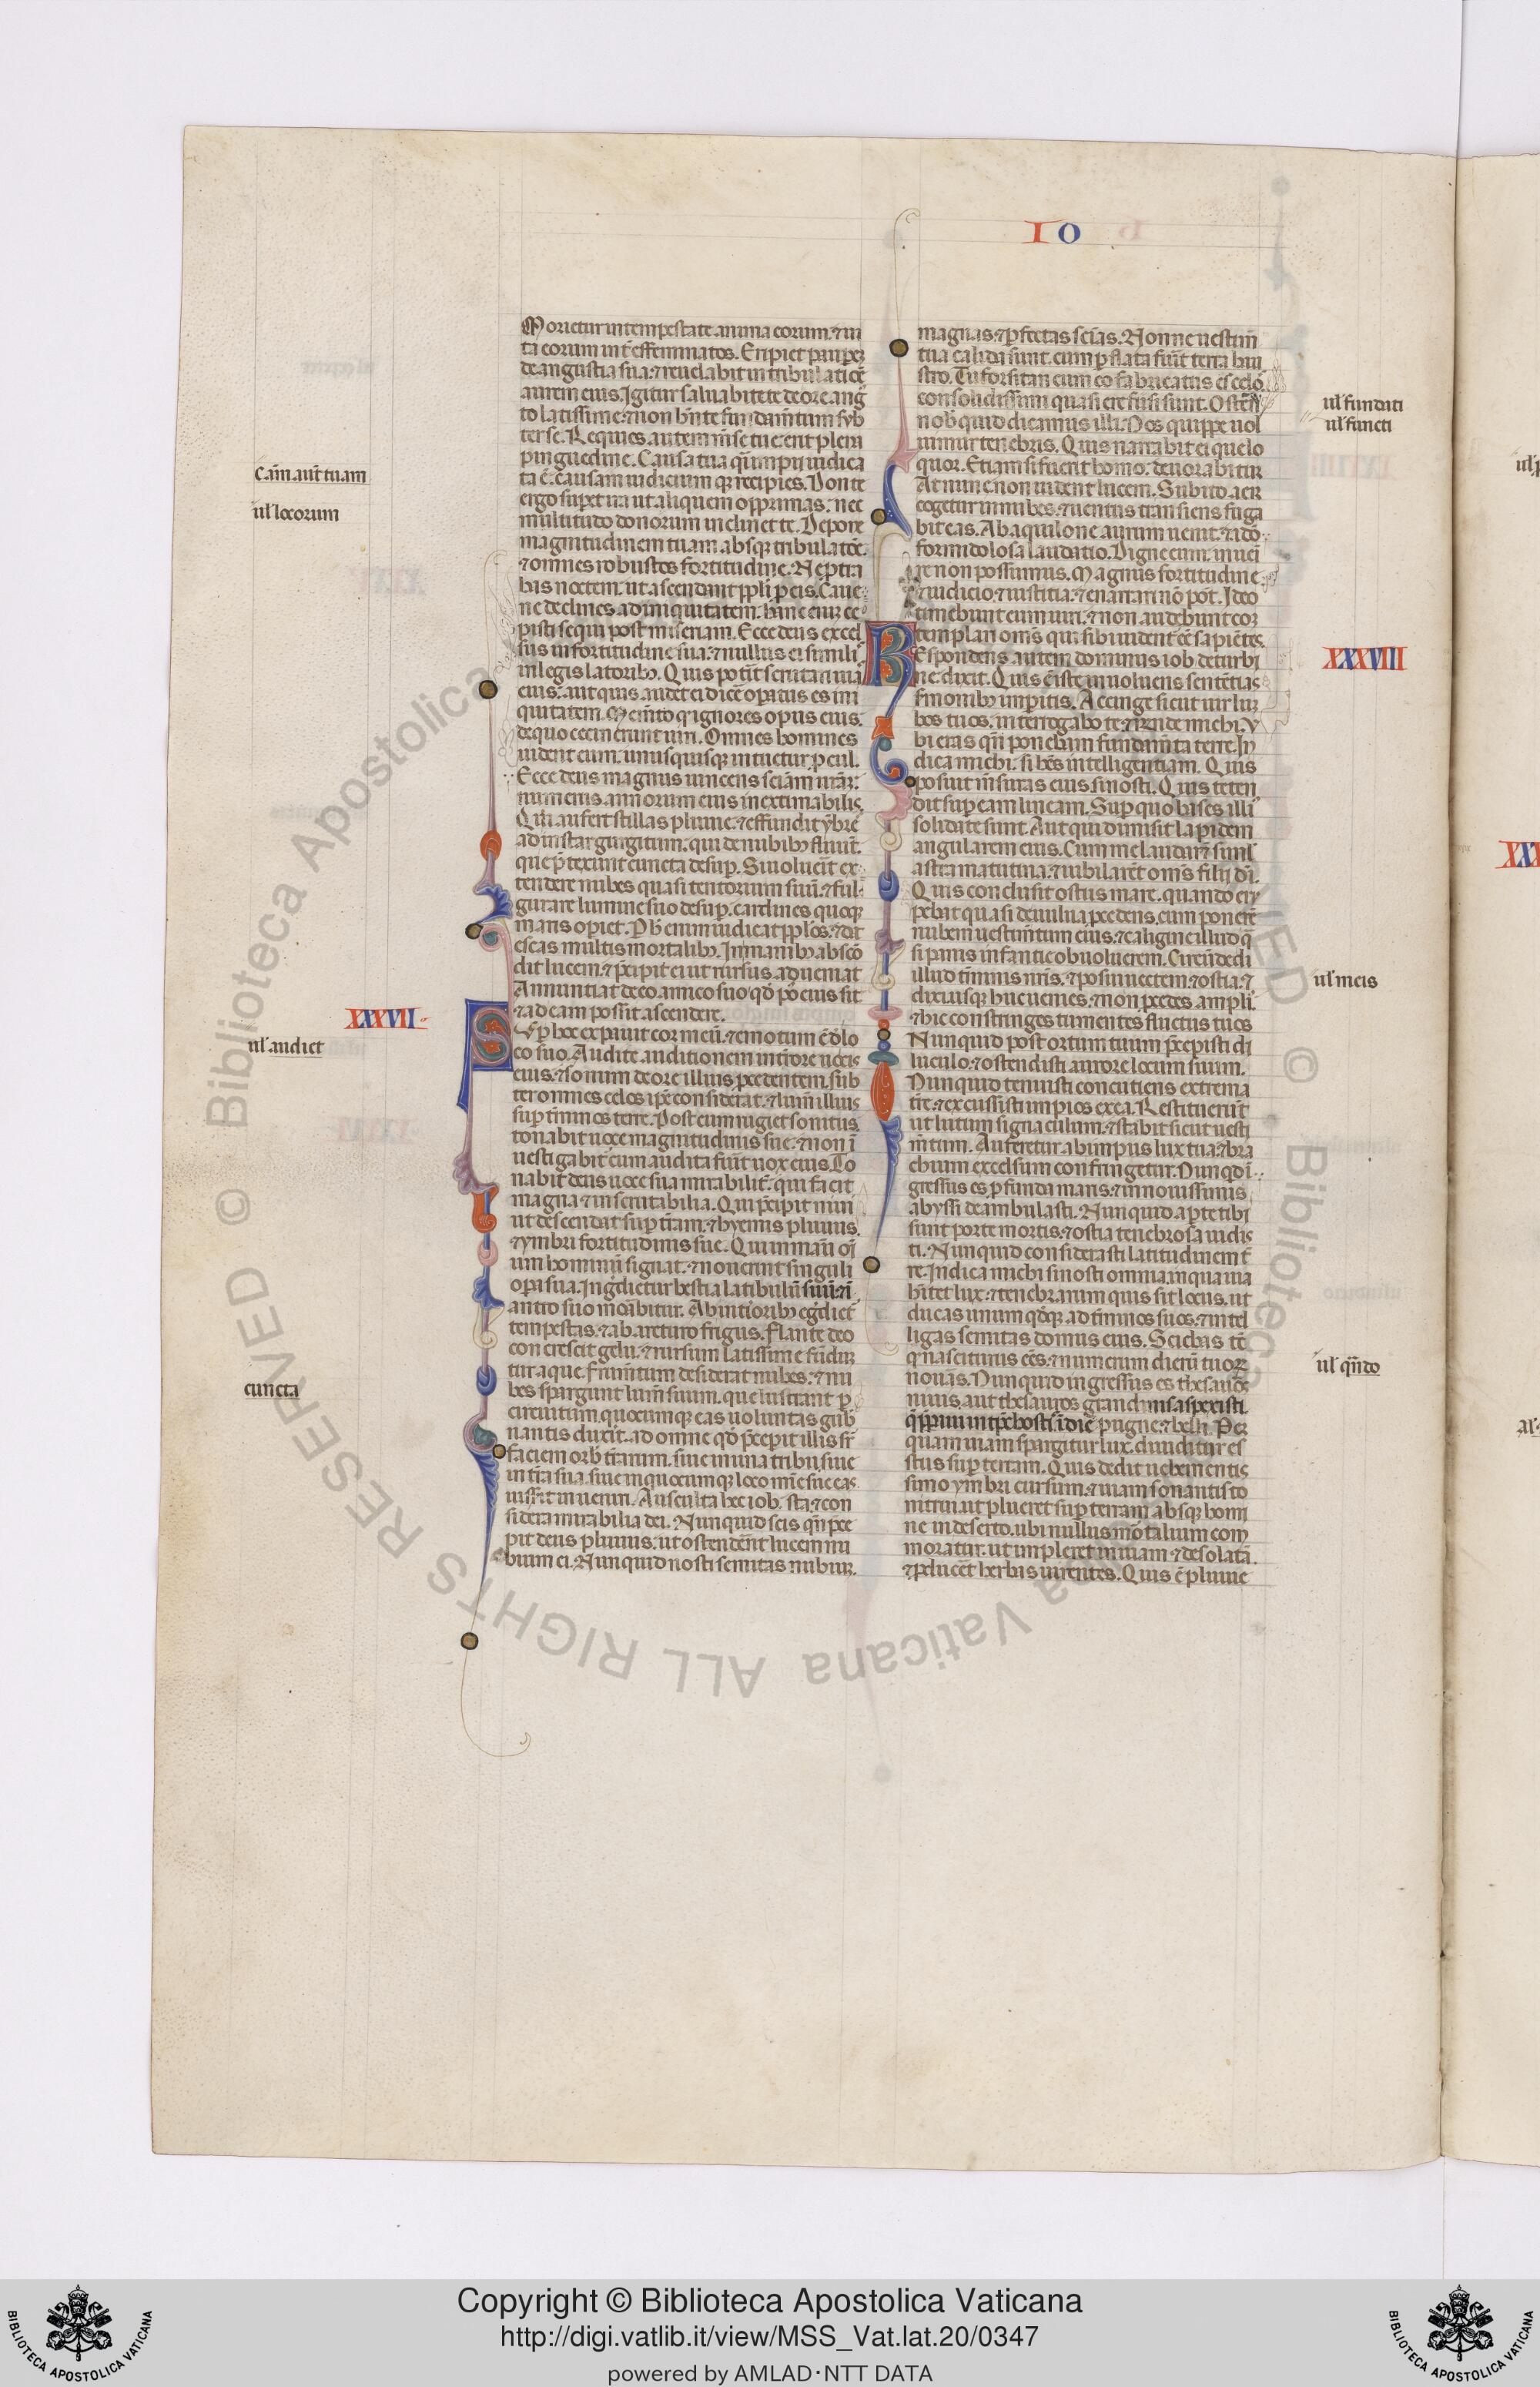 IO
Morietur in tempestate anima eorum. ⁊ ui
ta eorum int̄ effeminatos. Eripiet pauperē
de angustia sua: ⁊ reuelabit in tribulatiōe
aurem eius. Igitur saluabit te de ore ang
to latissime: ⁊ non hn̄te fundam̄tum sub
ter se. Requies autem m̄se tue erit plena
pinguedine. Causa tua q̄i impii iudica
ta ē: causam iudicium q̨ recipies. Non te
ergo superet ira ut aliquem opprimas: nec
multitudo donorum inclinet te. Depone
magnitudinem tuam absq̨ tribulatōe.
⁊ omnes robustos fortitudine. Ne p̄tra
has noctem. ut ascendant pp̄li p̄ eis. Caue
ne declines ad iniquitatem. hanc enim ce
pisti sequi post miseriam. Ecce deus excel
sus in fortitudine sua: ⁊ nullus ei simili
in legislatorib⁊. Quis pot̄it scrutari uias
eius: aut quis audet ei dice͛ opatus es ini
quitatem. Mem̄to q̨ ignores opus eius.
de quo cecinerunt uiri. Omnes homines
uident eum: unusquisq̨ intuetur p̄cul.
Ecce deus magnus uincens sciām nr̄am:
num̄us annorum eius inextimabilis.
Qui aufert stillas pluuie: ⁊ effundit ybres
ad instar gurgitum: qui de nubib⁊ fluūt.
que p̄texunt cuncta desup̄. Si uoluerit ex
tendere nubes quasi tentorium suū: ⁊ ful
gurare lumine suo desup̄. cardines quoq̨
maris opiet. P h̄ enim iudicat pp̄los: ⁊ dat
escas multis mortalib⁊. In manib⁊ abscō
dit lucem. ⁊ p̄cipit ei ut rursus adueniat
Annuntiat de eo amico suo qd̄ pō eius sit
⁊ ad eam possit ascendere.
XXXVII
Sup̄ hoc expauit cor meū: ⁊ emotum ē d̄ lo
co suo. Audite auditionem in t̄rore uocis
eius: ⁊ sonum de ore illius p̄cedentem. Sub
ter omnes celos ip̄e considerat: ⁊ lum̄ illius
sup̄ t̄minos terre. Post eum rugiet sonitus.
tonabit uoce magnitudinis sue: ⁊ non ī
uestigabit̄ cum audita fuit̄ uox eius. To
nabit deus uoce sua mirabilit̄: qui facit
magna ⁊ inscrutabilia. Qui p̄cipit niui
ut descendat sup̄ t̄ram: ⁊ hyemis pluuiis.
⁊ ymbri fortitudinis sue. Qui in manū oī
um hominū signat: ⁊ nouerint singuli
opa sua. Ingr̄dietur bestia latibulū suū: ⁊ ī
antro suo mōabitur. Ab int̄iorib⁊ egr̄diet̄
tempestas: ⁊ ab arcturo frigus. Flante deo
concrescit gelu: ⁊ rursum latissime fūdūt
tur aque. Frum̄tum desiderat nubes: ⁊ nu
bes spargunt lum̄ suum. que lustrant p̄
circuitum. quocumq̨ eas uoluntas gub̄
nantis duxit. ad omne qd̄ p̄ceperit illis sr̄
faciem orb̄ t̄rarum. siue in una tribu. siue
in t̄ra sua. siue in quocumq̨ loco mīe sue eas
iussit̄ inueniri. Ausculta hec iob. sta: ⁊ con
sidera mirabilia dei. Nunquid scis qn̄ p̄ce
pit deus pluuiis: ut ostenderēt lucem nu
bium ei. Nunquid nosti semitas nubiū.
magnas: ⁊ p̄fectas sciās. Nonne uestim̄
tua calida sunt. cum p̄flata fūit terra hau
stro. Tu forsitan cum eo fabricatus es celos
consolidissimi quasi ere fusi sunt. Ostende
nob̄ quid dicamus illi. Nos quippe uol
uimur tenebris. Quis narrabit ei que lo
quor. Etiam si fuerit homo: deuorabitur
At nunc non uident lucem. Subito aer
cogetur in nubes. ⁊ uentus transiens fuga
bit eas. Ab aquilone aurum uenit: ⁊ a dō
formidolosa laudatio. Digne eum inueī
re non possumus. Magnus fortitudine
⁊ iudicio ⁊ iustitia: ⁊ enarrari nō pōt. Ideo
timebunt eum uiri. ⁊ non audebunt cō
templari om̄s qui sibi uident̄ eē sapiētes.
XXXVIII
Respondens autem dominus iob de turbi
ne dixit. Quis ē iste inuoluens sentētias
smonib⁊ imperitis. Accinge sicut uir lū
bos tuos. interrogabo te: ⁊ r̄nde michi. V
bi eras qn̄ ponebam fundam̄ta terre. In
dica michi. si hēs intelligentiam. Quis
posuit m̄suras eius si nosti. Quis teten
dit sup̄ eam lineam. Sup̄ quo bases illi
solidate sunt. Aut quis dimisit lapidem
angularem eius. Cum me laudarēt simul
astra matutina: ⁊ iubilarēt om̄s filii dī.
Quis conclusit ostiis mare. quando erū
pebat quasi de uulua p̄cedens. cum ponerē
nubem uestim̄tum eius: ⁊ caligine illud q̄
si pannis infantie obuoluerem. Circūdedi
illud t̄minis mr̄is. ⁊ posui uectem ⁊ ostia: ⁊
dixi usq̨ huc uenies. ⁊ non p̄cedes ampli
⁊ hic constringes tumentes fluctus tuos
Nunquid post ortum tuum p̄cepisti di
luculo: ⁊ ostendisti aurore locum suum.
Nunquid tenuisti concutiens extrema
t̄re: ⁊ excussisti impios ex ea. Restituerūt
ut lutum signaculum: ⁊ stabit sicut uesti
m̄tum. Auferetur ab impiis lux tua: ⁊ bra
chium excelsum confringetur. Nunqd ī
gressus es p̄funda maris: ⁊ in nouissimis
abyssi deambulasti. Nunquid apte tibi
sunt porte mortis: ⁊ ostia tenebrosa uidis
ti. Nunquid considerasti latitudinem t̄
re. Indica michi si nosti omnia in qua uia
h̄itet lux: ⁊ tenebrarum quis sit locus. ut
ducas unum qd̄q̨ ad t̄minos suos: ⁊ intel
ligas semitas domus eius. Sciebas tē
q̨ nasciturus eēs: ⁊ numerum dierū tuor̄
noueras. Nunquid ingressus es thesauros
niuis. aut thesauros grandinis aspexisti.
q̄ p̄paraui in tp̄s hostis ī diē pugne ⁊ belli. Per
quam uiam spargitur lux. diuiditur es
stus sup̄ terram. Quis dedit uehementis
simo ymbri cursum. ⁊ uiam sonantis to
nitrui. ut plueret sup̄ terram absq̨ homi
ne in deserto. ubi nullus mōtalium com
moratur. ut impleret inuiam ⁊ desolatā.
⁊ p̄duceēt herbas uirentes. Quis ē pluuie
Cām aūt tuam
ul' locorum
ul' audiet
cuncta
ul' fundati
ul' functi
ul' meis
ul' qn̄do
Copyright © Biblioteca Apostolica Vaticana
http://digi.vatlib.it/view/MSS_Vat.lat.20/0347
powered by AMLAD·NTT DATA
BIBLIOTECA APOSTOLICA VATICANA
BIBLIOTECA APOSTOLICA VATICANA
© Biblioteca Apostolica Vaticana ALL RIGHTS RESERVED